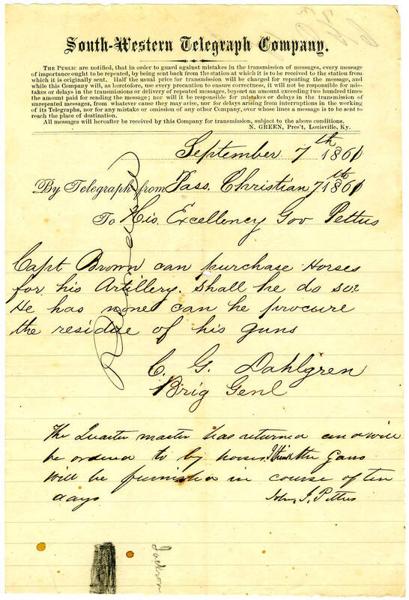 South-Western Telegraph Company.
THE PUBLIC are notified, that in order to guard against mistakes in the transmission of messages, every message
of importance ought to be repeated, by being sent back from the station at which it is to be received to the station from
which it is originally sent. Half the usual price for transmission will be charged for repeating the message, and
while this Company will, as heretofore, use every precaution to ensure correctness, it will not be responsible for mis-
takes or delays in the transmission or delivery of repeated messages, beyond an amount exceeding two hundred times
the amount paid for sending the message; nor will it be responsible for mistakes or delays in the transmission of
unrepeated messages, from whatever cause they may arise, nor for delays arising from interruptions in the working
of its Telegraphs, nor for any mistake or omission of any other Company, over whose lines a message is to be sent to
reach the place of destination.
All messages will hereafter be received by this Company for transmission, subject to the above conditions.
N. GREEN, Pres't, Louisville, Ky.
September 7th 1861
By Telegraph from Pass. Christian 7th 1861
To His Excellency Gov Pettus
Capt Brown can purchase Horses
for his Artillery. Shall he do so?
He has none can he procure
the residue of his guns
C. G. Dahlgren
Brig Genl
The Quarter master has returned and will
be ordered to by horses. I think the Guns
will be furnished in course of ten
days
John J. Pettus
Jackson